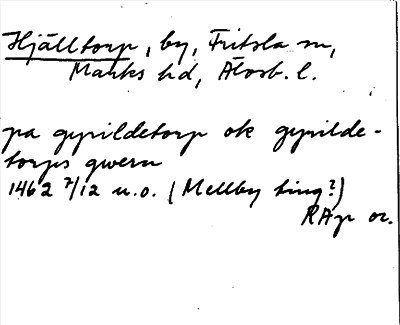 Hjälltorp, by, Fritsla sn,
Marks hd, Älvsb. l.
pa gyrildetorp ok gyrilde-
torps qwern
1462 7/12 u.o. (Mellby ting?)
RAp or.